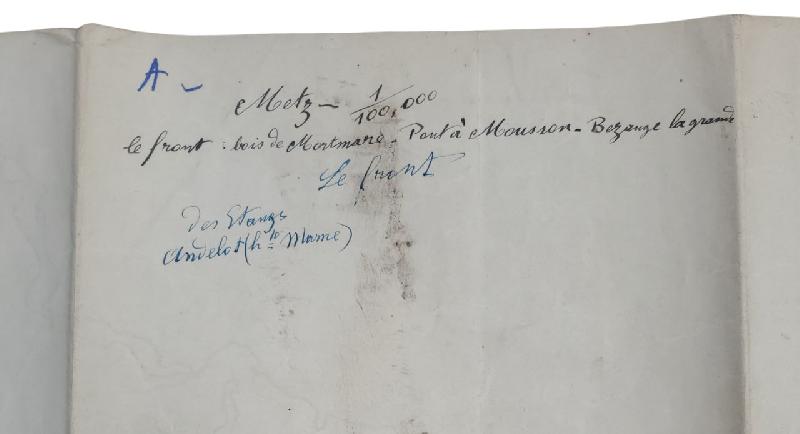 A -
Metz - 1/100,000
le front : bois de Mortmare - Pont à Mousson - Bezange la grande
Le front
des Etangs
Andelot (hte Marne)